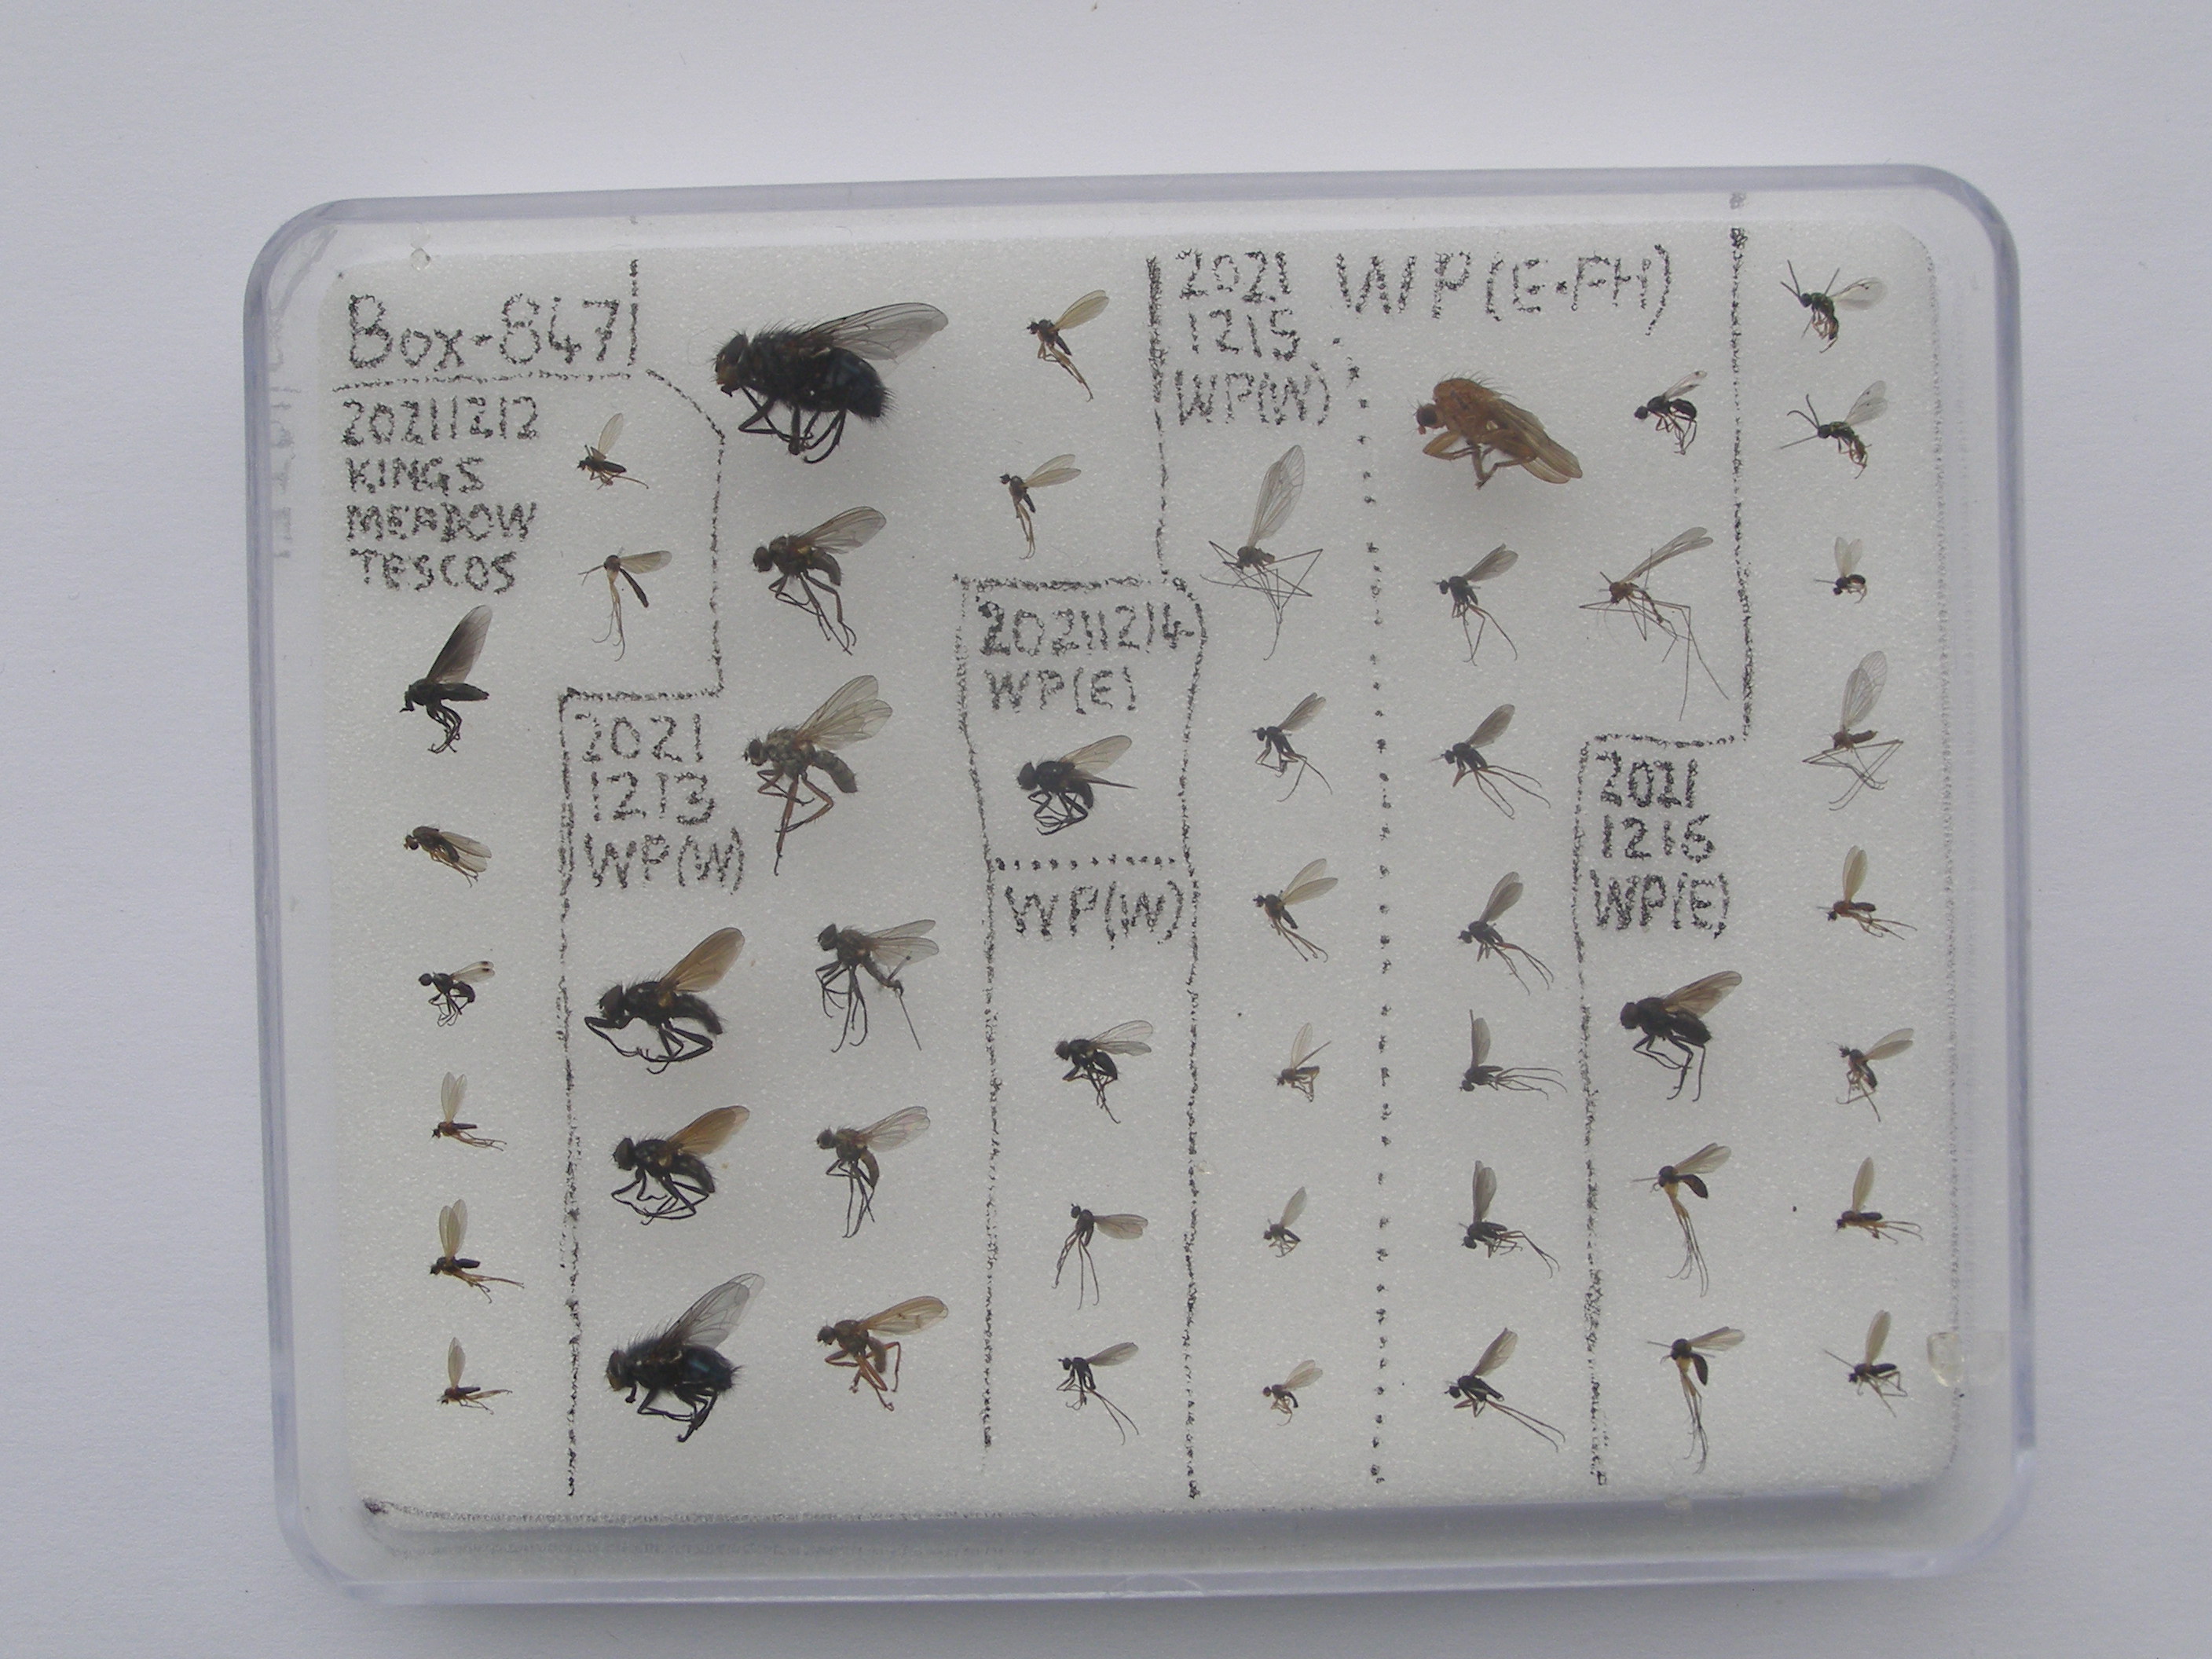 Box-847
20211212
KINGS
MEADOW
TESCOS
2021
1213
WP(W)
20211214
WP(E)
WP(W)
2021
1215
WP(W)
WP(E·FH)
2021
1215
WP(E)